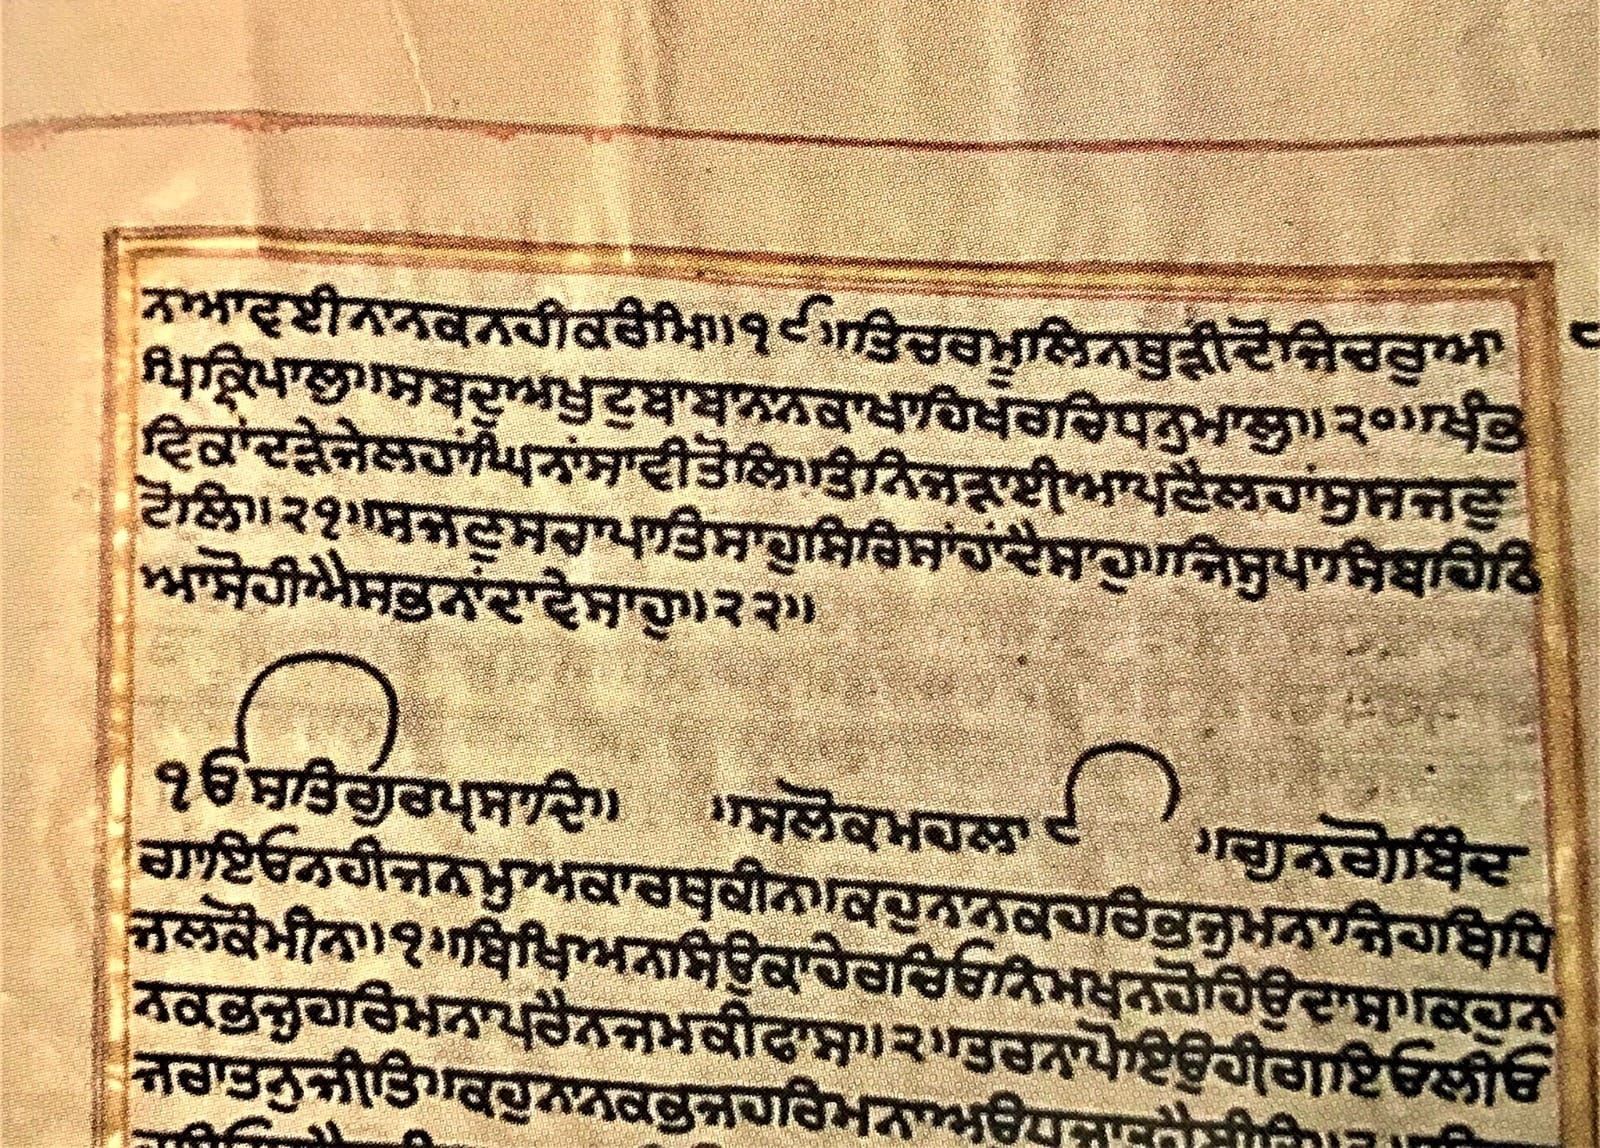 ਨਾਆਵਈਨਾਨਕਨਹੀਕਰੀਮਿ॥੧੯॥ਤਿਚਰਮੂਲਿਨਥੁੜੀਦੋਜਿਚਰੁਆ
ਪਿਕ੍ਰਿਪਾਲੁ॥ਸਬਦੁਅਖੁਟੁਬਾਬਾਨਾਨਕਾਖਾਹਿਖਰਚਿਧਨੁਮਾਲੁ॥੨੦॥ਖੰਭ
ਵਿਕਾਂਦੜੇਜੇਲਹਾਂਘਿਨਾਂਸਾਵੀਤੋਲਿ॥ਤੰਨਿਜੜਾਈਆਪਣੈਲਹਾਂਸੁਸਜਣੁ
ਟੋਲਿ॥੨੧॥ਸਜਣੁਸਚਾਪਾਤਿਸਾਹੁਸਿਰਿਸਾਂਹਾਂਦੈਸਾਹੁ॥ਜਿਸੁਪਾਸਿਬਹਿਠਿ
ਆਸੋਹੀਐਸਭਨਾਂਦਾਵੇਸਾਹੁ॥੨੨॥
ੴਸਤਿਗੁਰਪ੍ਰਸਾਦਿ॥ ॥ਸਲੋਕਮਹਲਾ੯ ॥ਗੁਨਗੋਬਿੰਦ
ਗਾਇਓਨਹੀਜਨਮੁਅਕਾਰਥਕੀਨ॥ਕਹੁਨਾਨਕਹਰਿਭਜੁਮਨਾਜਿਹਬਿਧਿ
ਜਲਕੌਮੀਨ॥੧॥ਬਿਖਿਅਨਸਿਉਕਾਹੇਰਚਿਓਨਿਮਖਨਹੋਹਿਉਦਾਸ॥ਕਹੁਨਾ
ਨਕਭਜੁਹਰਿਮਨਾਪਰੈਨਜਮਕੀਫਾਸ॥੨॥ਤਰਨਾਪੋਇਉਹੀਗਇਓਲੀਓ
ਜਰਾਤਨੁਜੀਤਿ॥ਕਹੁਨਾਨਕਭਜੁਹਰਿਮਨਾਅਉਧਜਾਤੁਹੈਬੀਤਿ॥੩॥